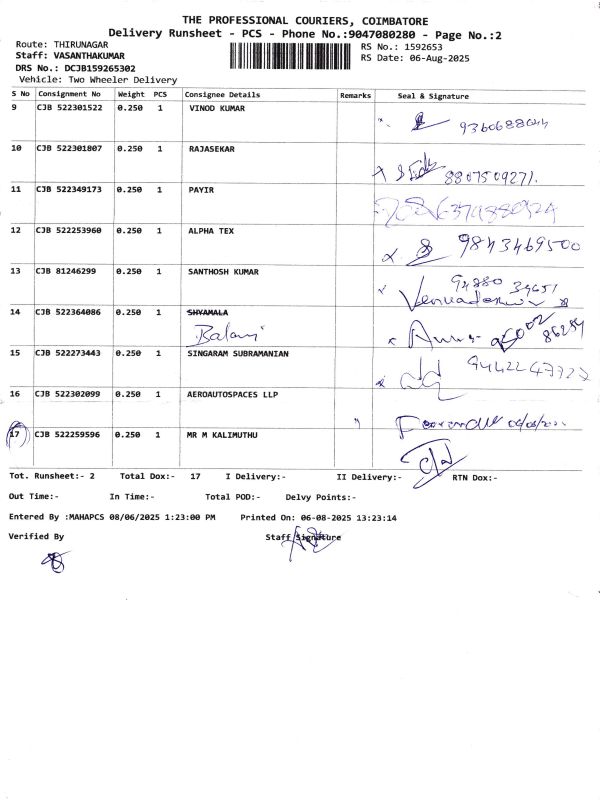 THE PROFESSIONAL COURIERS, COIMBATORE
Delivery Runsheet - PCS - Phone No.:9047080280 - Page No.:2
Route: THIRUNAGAR
RS No.: 1592653
Staff: VASANTHAKUMAR
RS Date: 06-Aug-2025
DRS No.: DCJB159265302
Vehicle: Two Wheeler Delivery
S No Consignment No Weight PCS Consignee Details Remarks Seal & Signature
9 CJB 522301522 0.250 1 VINOD KUMAR
10 CJB 522301807 0.250 1 RAJASEKAR
8807509271.
11 CJB 522349173 0.250 1 PAYIR
12 CJB 522253960 0.250 1 ALPHA TEX
9843469500
13 CJB 81246299 0.250 1 SANTHOSH KUMAR
94880 34651
14 CJB 522364086 0.250 1 SHYAMALA
15 CJB 522273443 0.250 1 SINGARAM SUBRAMANIAN
16 CJB 522302099 0.250 1 AEROAUTOSPACES LLP
17 CJB 522259596 0.250 1 MR M KALIMUTHU
Tot. Runsheet:- 2 Total Dox:- 17 I Delivery:- II Delivery:- RTN Dox:-
Out Time:- In Time:- Total POD:- Delvy Points:-
Entered By :MAHAPCS 08/06/2025 1:23:00 PM Printed On: 06-08-2025 13:23:14
Verified By Staff Signature